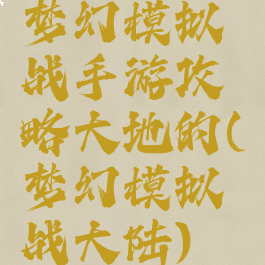 梦幻模拟
战手游攻
略大地的(
梦幻模拟
战大陆)